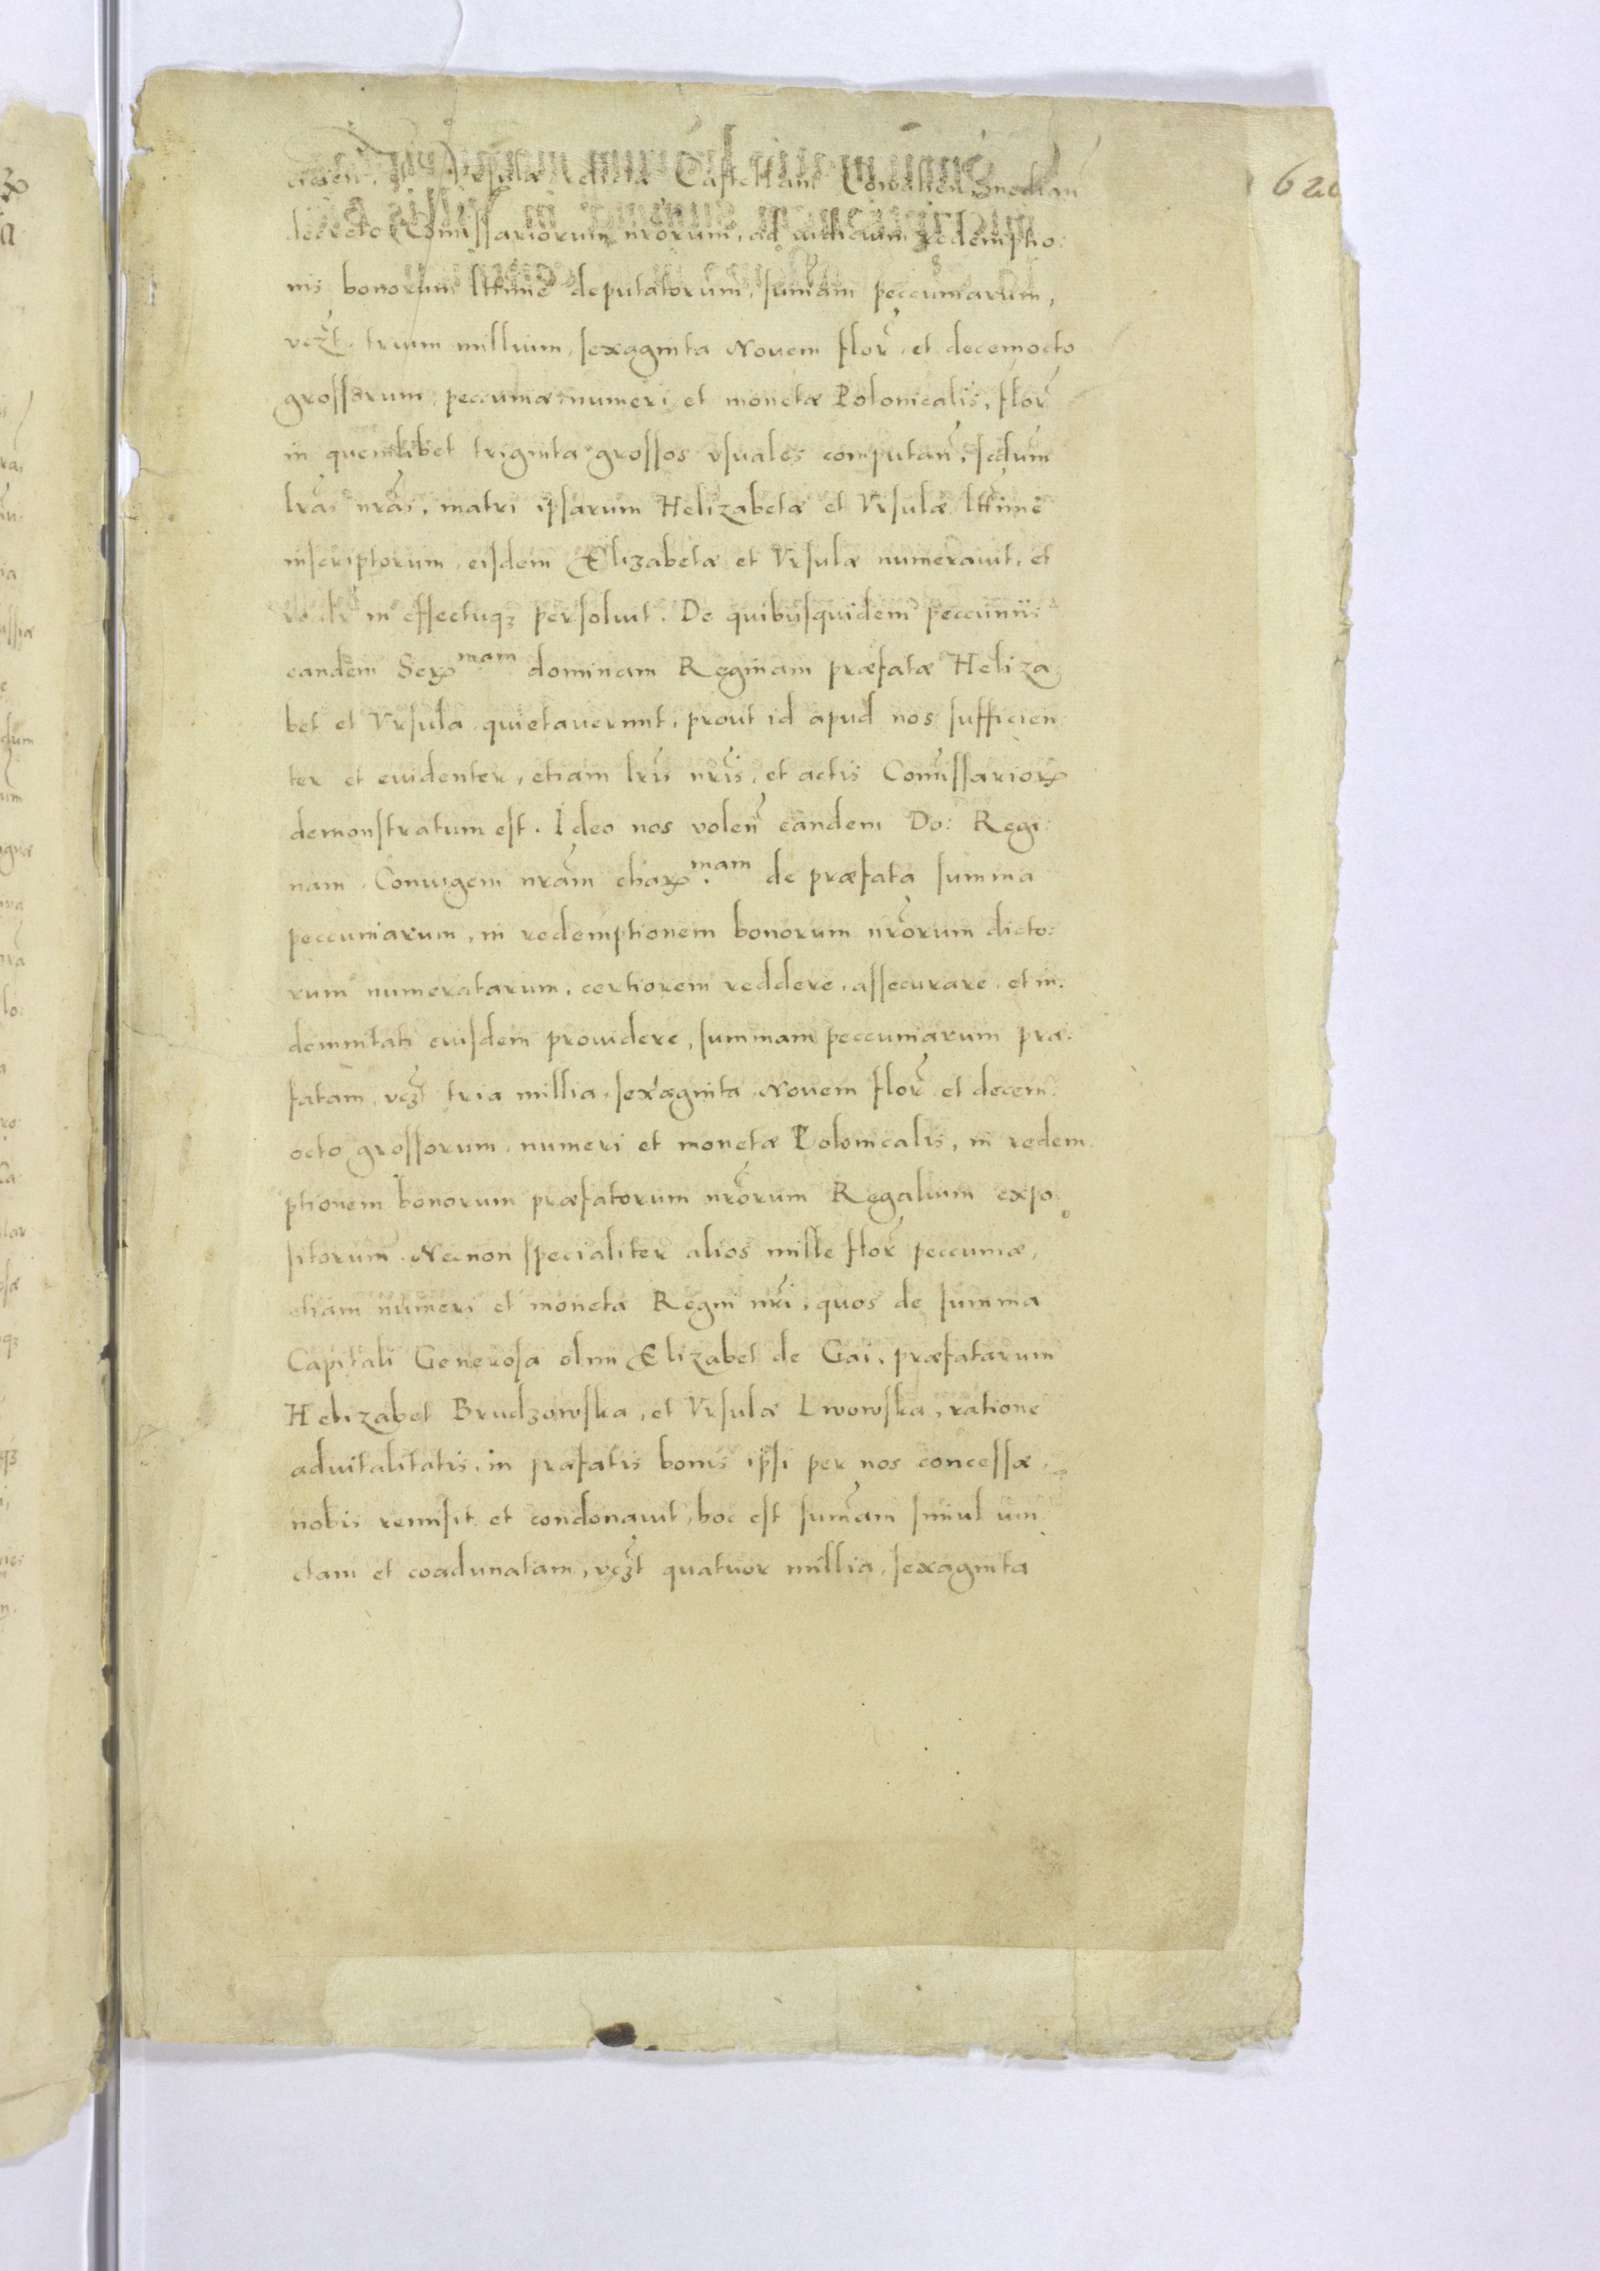 620
Vrsulæ Castellani median̄
decreto Com̄issariorum nr̄orum, ad iudicium redemptio:
nis bonorum lttīme deputatorum, sum̄am peccuniarum,
vcz̄t. trium millium, sexaginta Novem flor̄. et decemocto
grossorum, peccuniæ numeri et monetæ Polonicalis, flor̄
in quemlibet triginta grossos vsuales computan̄, scdum̄
lrās nrās, matri ipsarum Helizabetæ et Vrsulæ lttīme
inscriptorum, eisdem Elizabetæ et Vrsulæ numerauit, et
in effectuqȝ persoluit. De quibusquidem peccuniis
eandem Serꝝmam dominam Reginam præfatæ Heliza
bet et Vrsula quietauerunt, prout id apud nos sufficien
ter et euidenter, etiam lrīs nrīs, et actis Com̄issarioꝝ
demonstratum est. Ideo nos volen̄ eandem Do: Regi:
nam Coniugem nrām charꝝmam de præfata summa
peccuniarum, in redemptionem bonorum nr̄orum dicto:
rum numeratarum, certiorem reddere, assecurare, et in:
demnitati eiusdem prouidere, summam peccuniarum præ:
fatam, vcz̄t tria millia, sexaginta Novem flor̄ et decem:
octo grossorum, numeri et monetæ Polonicalis, in redem
ptionem bonorum præfatorum nr̄orum Regalium expo:
sitorum. Necnon specialiter alios mille flor̄ peccuniæ,
etiam numeri et moneta Regni nrī, quos de summa
Capitali Generosa olim Elizabet de Gai, præfatarum
Helizabet Brudzowska, et Vrsulæ Lwowska, ratione
aduitalitatis, in præfatis bonis ipsi per nos concessæ,
nobis remisit et condonauit, hoc est sum̄am simul uni
ctam et coadunatam, vcz̄t quatuor millia, sexaginta